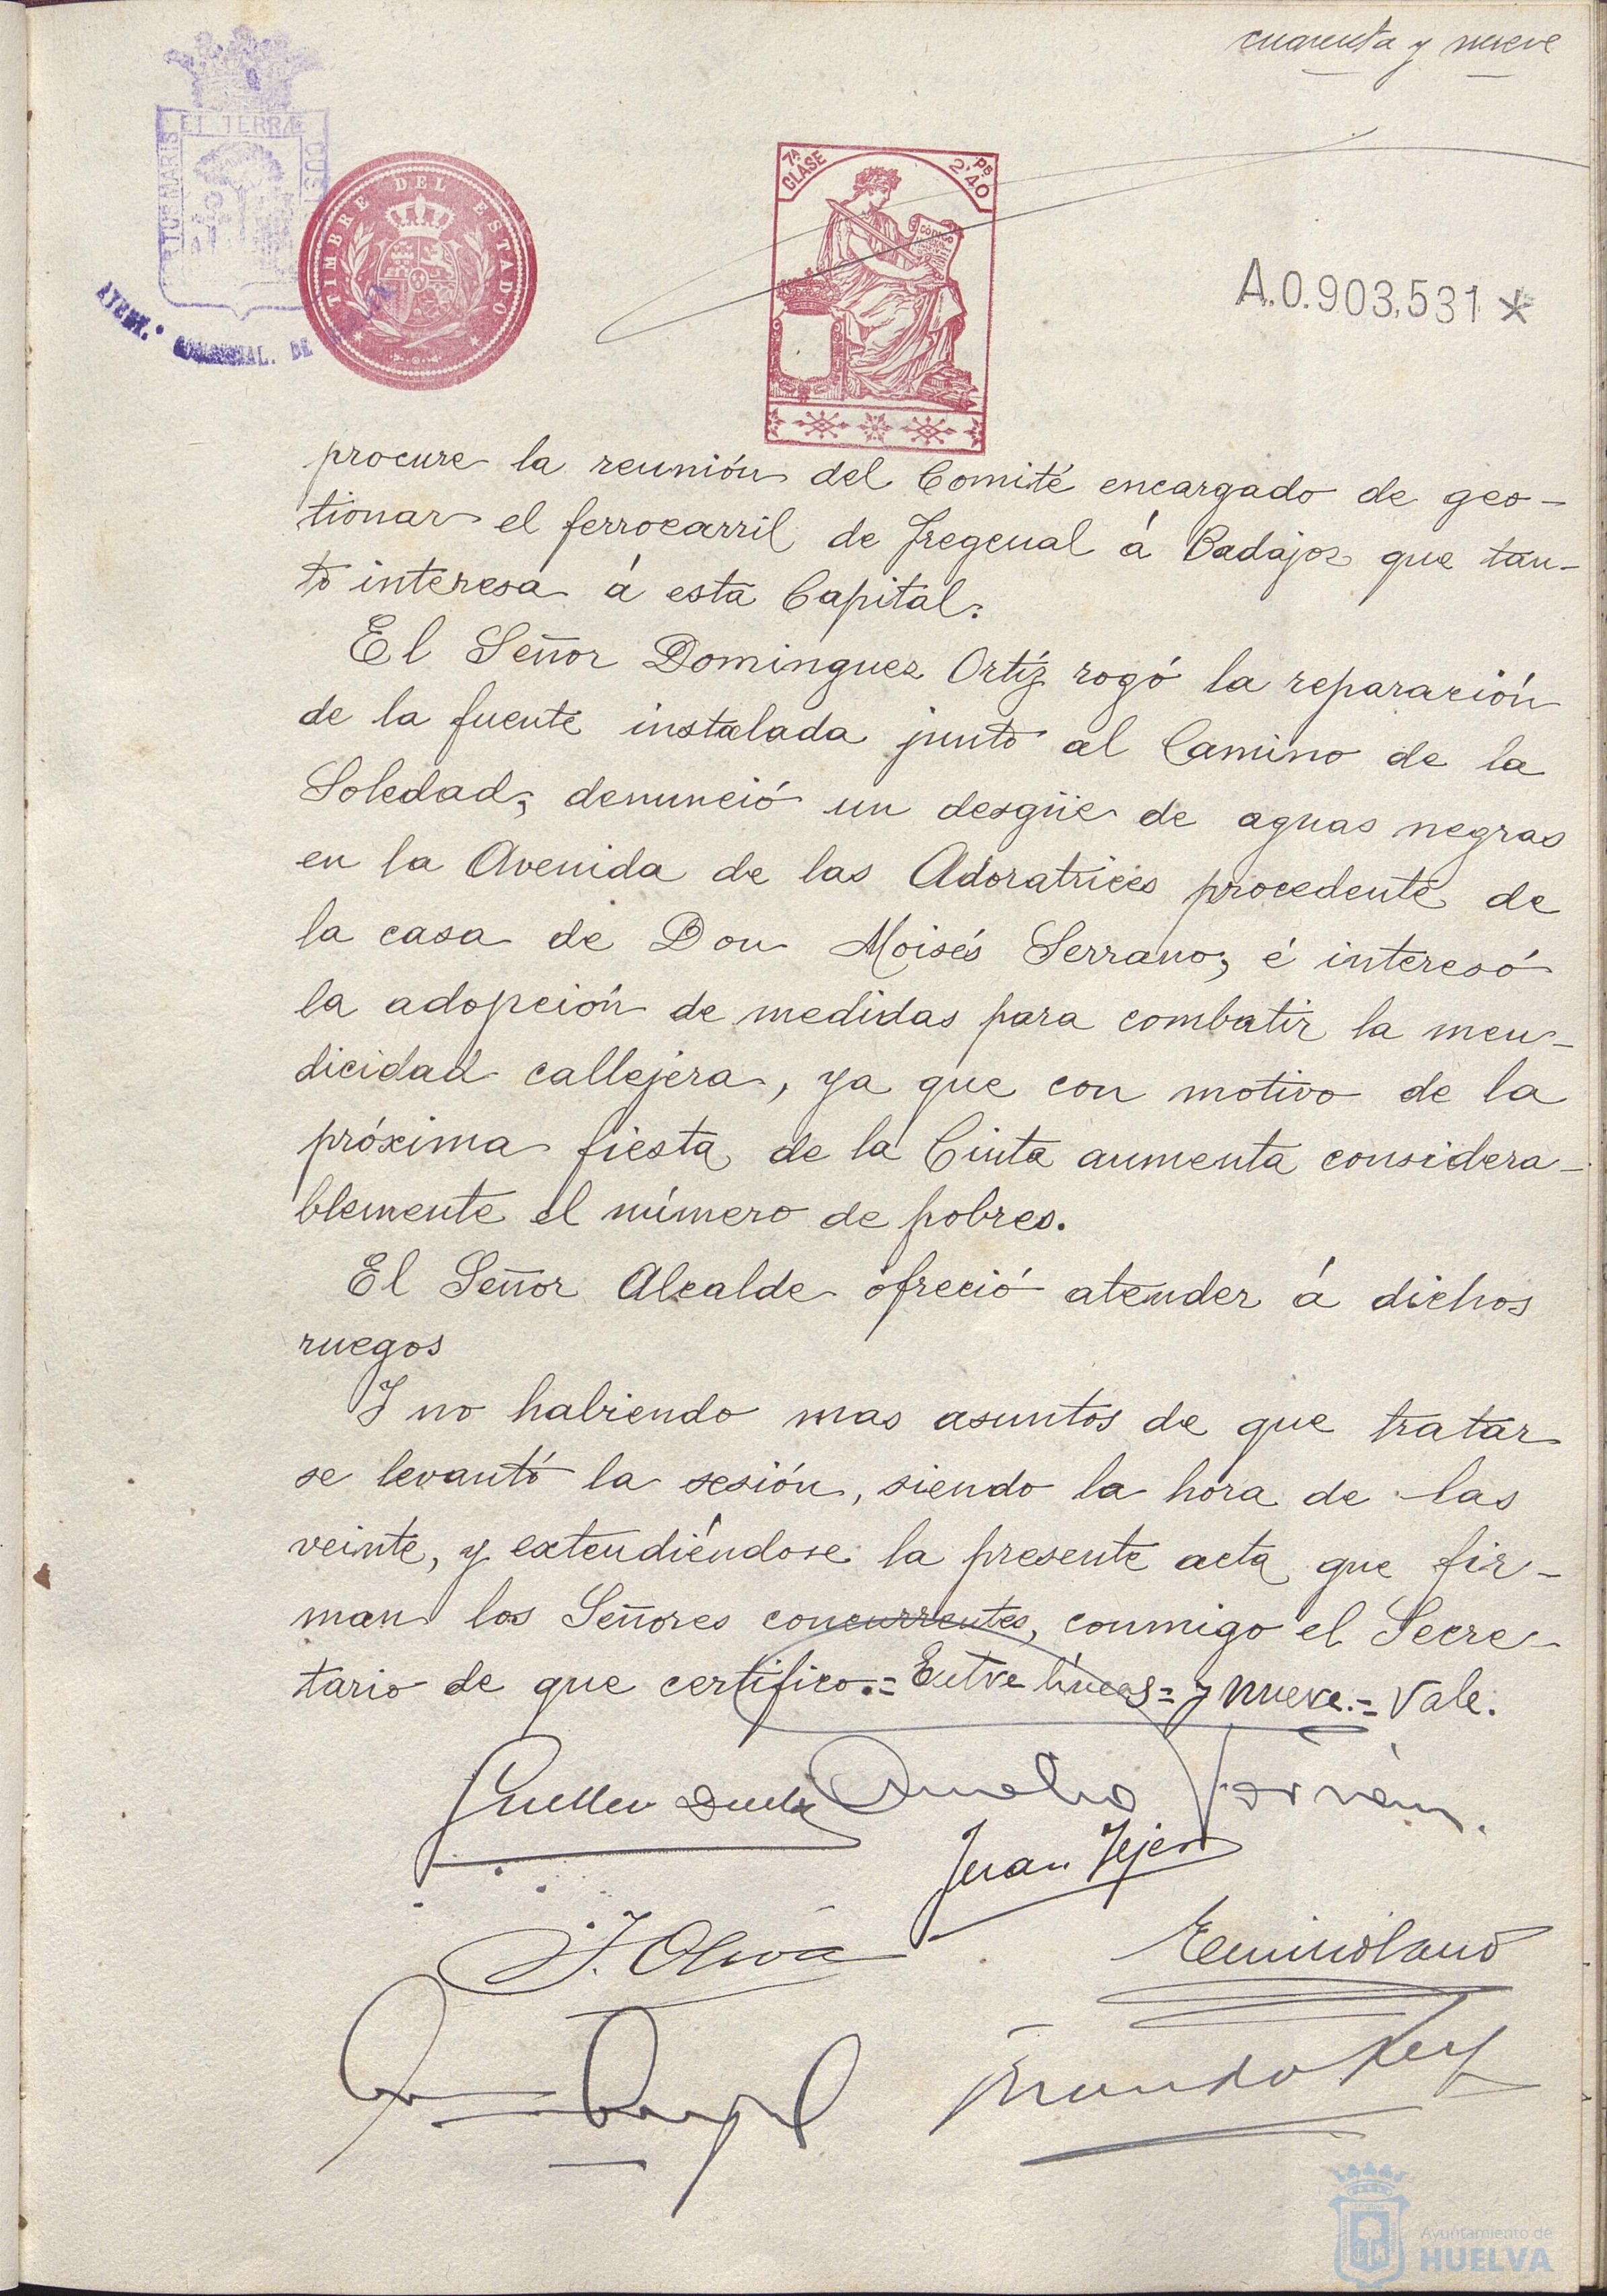 cuarenta y nueve
ET TERRÆ
PORTUS MARIS
CUS
TIMBRE DEL ESTADO
7ª CLASE
2'40 Ps
CODIGO
A.0.903,531 *
AYUNT.º CONSTITUCIONAL. DE
procure la reunión del Comité encargado de ges-
tionar el ferrocarril de Fregenal á Badajoz que tan-
to interesa á esta Capital.
El Señor Dominguez Ortíz rogó la reparación
de la fuente instalada junto al Camino de la
Soledad; denunció un desgüe de aguas negras
en la Avenida de las Adoratrices procedente de
la casa de Don Moisés Serrano; é interesó
la adopción de medidas para combatir la men-
dicidad callejera, ya que con motivo de la
próxima fiesta de la Cinta aumenta considera-
blemente el número de pobres.
El Señor Alcalde ofreció atender á dichos
ruegos
Y no habiendo mas asuntos de que tratar
se levantó la sesión, siendo la hora de las
veinte, y extendiéndose la presente acta que fir-
man los Señores concurrentes, conmigo el Secre-
tario de que certifico.= Entre líneas= y nueve.= Vale.
Juan Tejero
J. Oliva
Ayuntamiento de
HUELVA